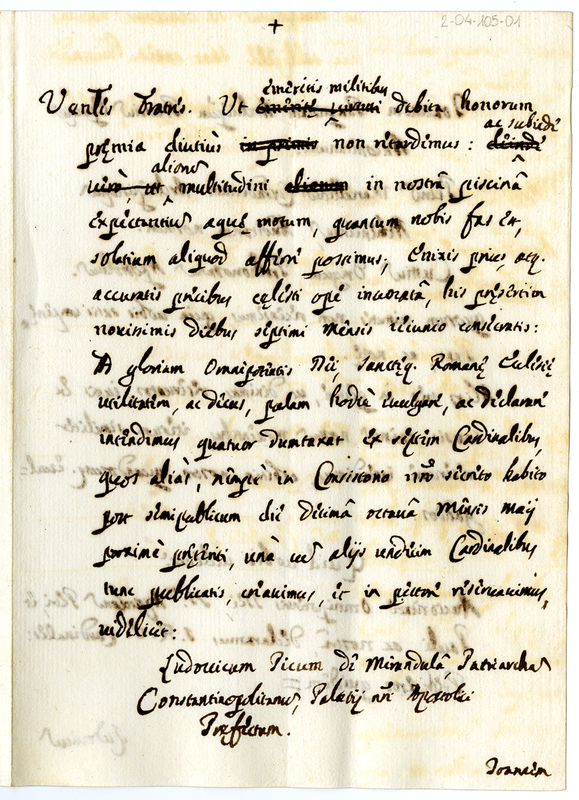 2-04-105-01
+
emeritis militibus
Ven. Fratres. Ut debita honorum
ac subinde
pręmia diutius in primis non retardemus: deinde
alionū
verò, ut multitudini aliam in nostrâ piscinâ
expectantiū aquę motum, quantum nobis fas est,
solatium aliquod afferre possimus; Enixis prius, atq.
accuratis precibus cęlesti ope invocatâ, his pręsertim
novissimis diebus septimi mensis ieiunio consecratis:
Ad gloriam Omnipotentis Dei, sanctęq. Romanę Ecclesię
utilitatem, ac decus, palam hodie evulgare, ac declarare
intendimus quatuor dumtaxat ex septem Cardinalibus,
quos aliàs, nempè in Consistorio nro secreto habito
post semipublicum die decimâ octavâ Mensis Maij
proximè pręteriti, unà cū alijs undecim Cardinalibus
tunc publicatis, creavimus, et in pectore reservavimus,
videlicet:
Ludovicum Picum de Mirandulâ, Patriarcham
Constantinopolitanum, Palatij nri Apostolici
Pręfectum.
Joannem